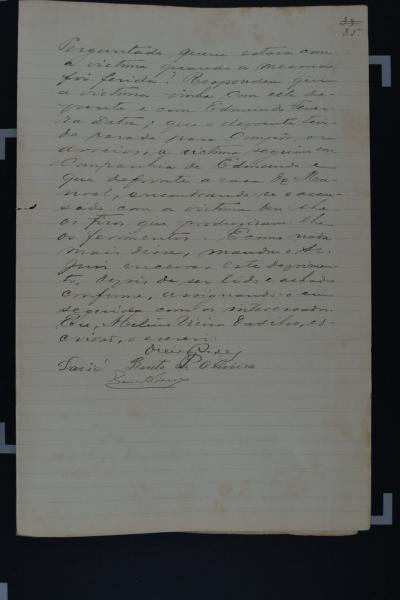 35
Perguntado quem estava com
a victima quando a mesma
foi ferida? Respondeu que
a victima vinha com elle de-
poente e com Edmundo
Dutra; que o depoente ten-
do parado para compôr os
arreios, a victima seguiu em
companhia de Edmundo e
que defronte a casa de Ma-
noel, encontrando-se o accu-
sado com a victima deu-lhe
os tiros que produziram-lhe
os ferimentos. E como nada
mais disse, mandou o Sr.
Juiz encerrar este depoimen-
to, depois de ser lido e achado
conforme, assignando-o em
seguida com os interessados.
Eu, Vieira, es-
crivão, o escrevi.
Bento de Oliveira